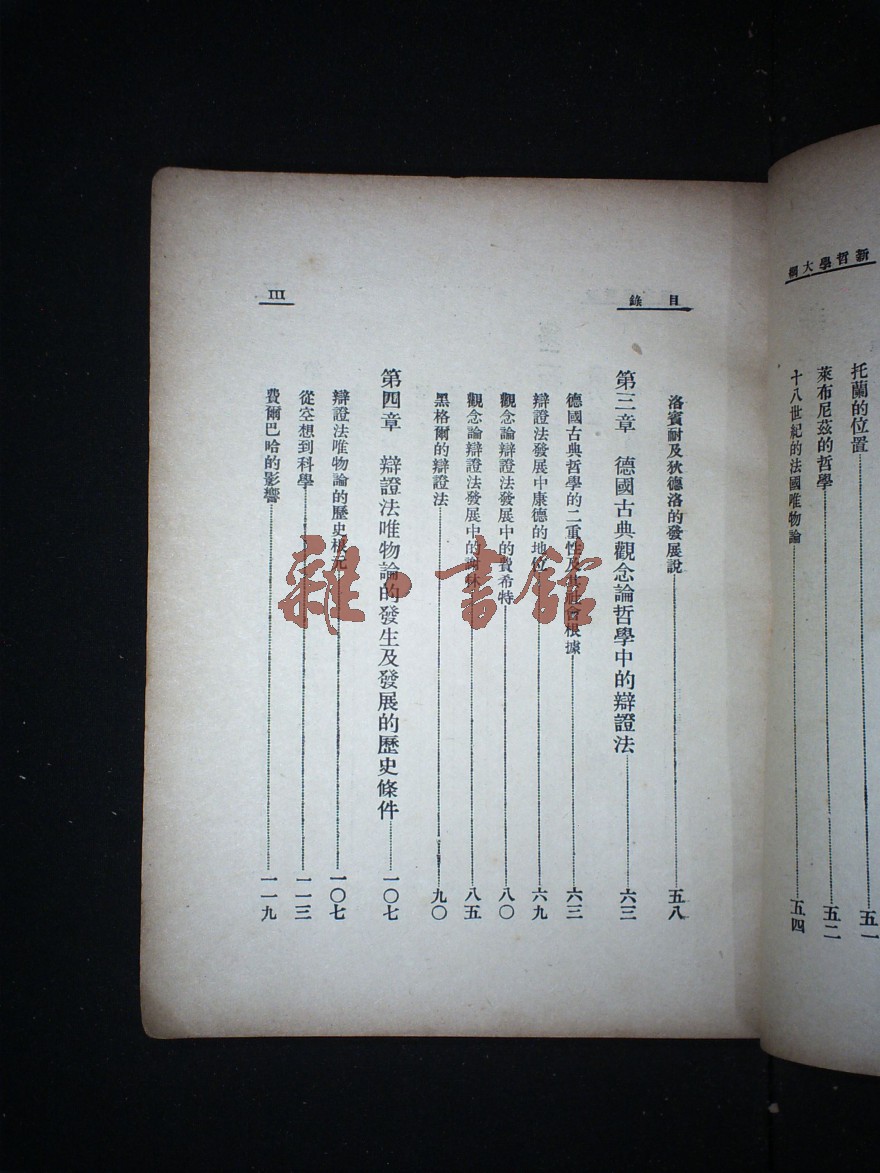 新哲學大綱
托蘭的位置……五一
萊布尼茲的哲學……五二
十八世紀的法國唯物論……五四
目錄
III
洛賓耐及狄德洛的發展說……五八
第三章 德國古典觀念論哲學中的辯證法……六三
德國古典哲學的二重性及其社會根據……六三
辯證法發展中康德的地位……六九
觀念論辯證法發展中的費希特……八〇
觀念論辯證法發展中的謝林……八五
黑格爾的辯證法……九〇
第四章 辯證法唯物論的發生及發展的歷史條件……一〇七
辯證法唯物論的歷史根元……一〇七
從空想到科學……一一三
費爾巴哈的影響……一一九
雜·書館